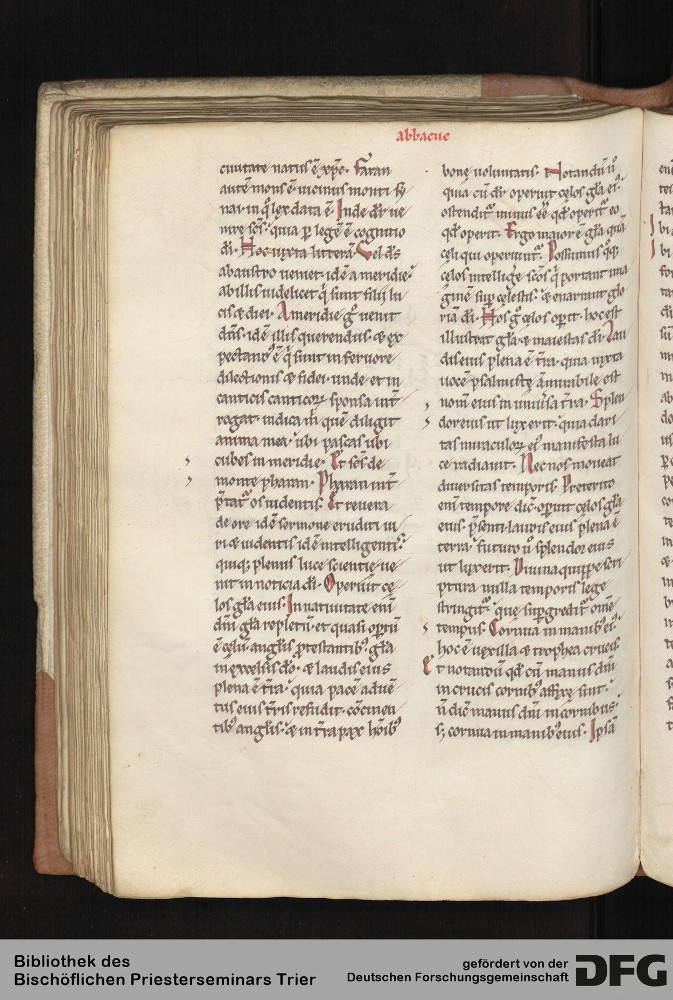 abbacuc
ciuitate natus ē xp̄c. Faran
autē mons ē uicinus monti sy
nai in q̊ lex data ē. Inde dr̄ ue
nire scs̄. quia p legē ē cognitio
di. Hoc iuxta litterā. Vel ds̄
ab austro ueniet. idē a meridie.
ab illis uidelicet q̇ sunt filii lu
cis & diei. A meridie g̊ uenit
dn̄s. idē illis querendus. & ex
pectandꝰ ē q̇ sunt in feruore
dilectionis & fidei. unde et in
canticis canticoꝝ sponsa int̄
rogat. indica m̄ quē diligit
anima mea. ubi pascas ubi
cubes in meridie. Et scs̄ de
monte pharan. Pharan int̄
p̄tat᷑ os uidentis. Et reuera
de ore idē sermone eruditi ui
ri & uidentis idē intelligentis.
quiq; plenus luce scientie ue
nit in noticia di. Operuit ce
los gl̄a eius. In natiuitate enī
dn̄i gl̄a repletū. et quasi optū
ē celū angl̄is p̄testantibꝰ. gl̄a
in excelsis dō. & laudis eius
plena ē tr̄a. quia pacē aduē
tus eius tr̄is refudit. cōcinen
tibꝰ angl̄is. & in tr̄a pax hōibꝰ
bone uoluntatis. Notandū ū
quia cū dr̄ operuit celos gl̄a eiꝰ.
ostendit᷑ minus eē qd̄ operit᷑ eo
qd̄ operit. Ergo maior ē gl̄a quā
celi qui operiunt᷑. Possumus q̊q;
celos intellige scōs q̇ portant ima
ginē sup̄celestis. & enarrant glo
riā di. Hos g̊ celos operit. hoc est
illustrat gl̄a & maiestas di. Lau
dis eius plena ē tr̄a. quia iuxta
uocē psalmiste āmirabile est
nomē eius in uniūsa tr̄a. Splen
dor eius ut lux erit. quia clari
tas miraculoꝝ eiꝰ manifesta lu
ce radiauit. Nec nos moueat
diuersitas temporis. Preterito
enī tempore dic̄. opuit celos gl̄a
eius. p̄senti. laudis eius plena ē
terra. futuro ū splendor eius
ut lux erit. Diuina quippe scri
ptura nulla temporis lege
stringit᷑. que sup̄gredit᷑ om̄e
tempus. Cornua in manibꝰ eiꝰ.
hoc ē uexilla & trophea crucis
Et notandū qd̄ cū manus dn̄i
in crucis cornibꝰ affixe sint.
n̄ dic̄ manus dn̄i in cornibus.
s; cornua in manibꝰ eius. Ipsā
Bibliothek des
Bischöflichen Priesterseminars Trier
gefördert von der
Deutschen Forschungsgemeinschaft
DFG